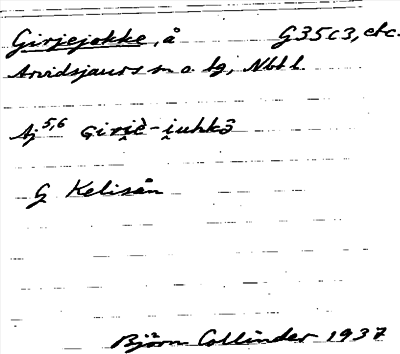 Girjejokke, å G35c3, etc.
Arvidsjaurs sn o. tg, Nbtl.
Aj 5,6
G Kelisån
Björn Collinder 1937